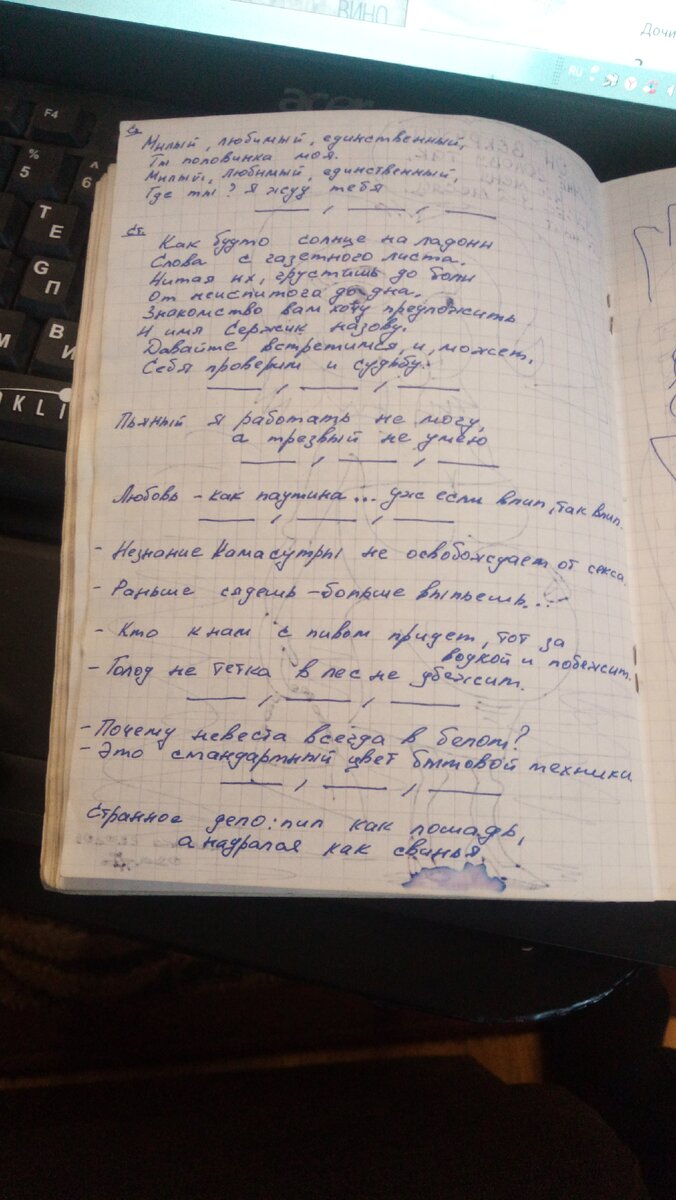 ВИНО
Дочи
RU
acer
F4
%
5
^
6
T
Е
G
П
М
В
И
OKLI
Сл.
Милый, любимый, единственный,
Ты половинка моя.
Милый, любимый, единственный,
Где ты? Я жду тебя
Ст.
Как будто солнце на ладони
Слова с газетного листа.
Читая их, грустишь до боли
От неиспитого до дна.
Знакомство вам хочу предложить
И имя Сержик назову.
Давайте встретимся, и, может,
Себя проверим и судьбу.
Пьяный я работать не могу,
а трезвый не умею
Любовь - как паутина... уж если влип, так влип.
- Незнание Камасутры не освобождает от секса.
- Раньше сядешь - больше выпьешь...
- Кто к нам с пивом придет, тот за
водкой и побежит.
- Голод не тетка в лес не убежит.
- Почему невеста всегда в белом?
- Это стандартный цвет бытовой техники
Странное дело: пил как лошадь,
а надрался как свинья.